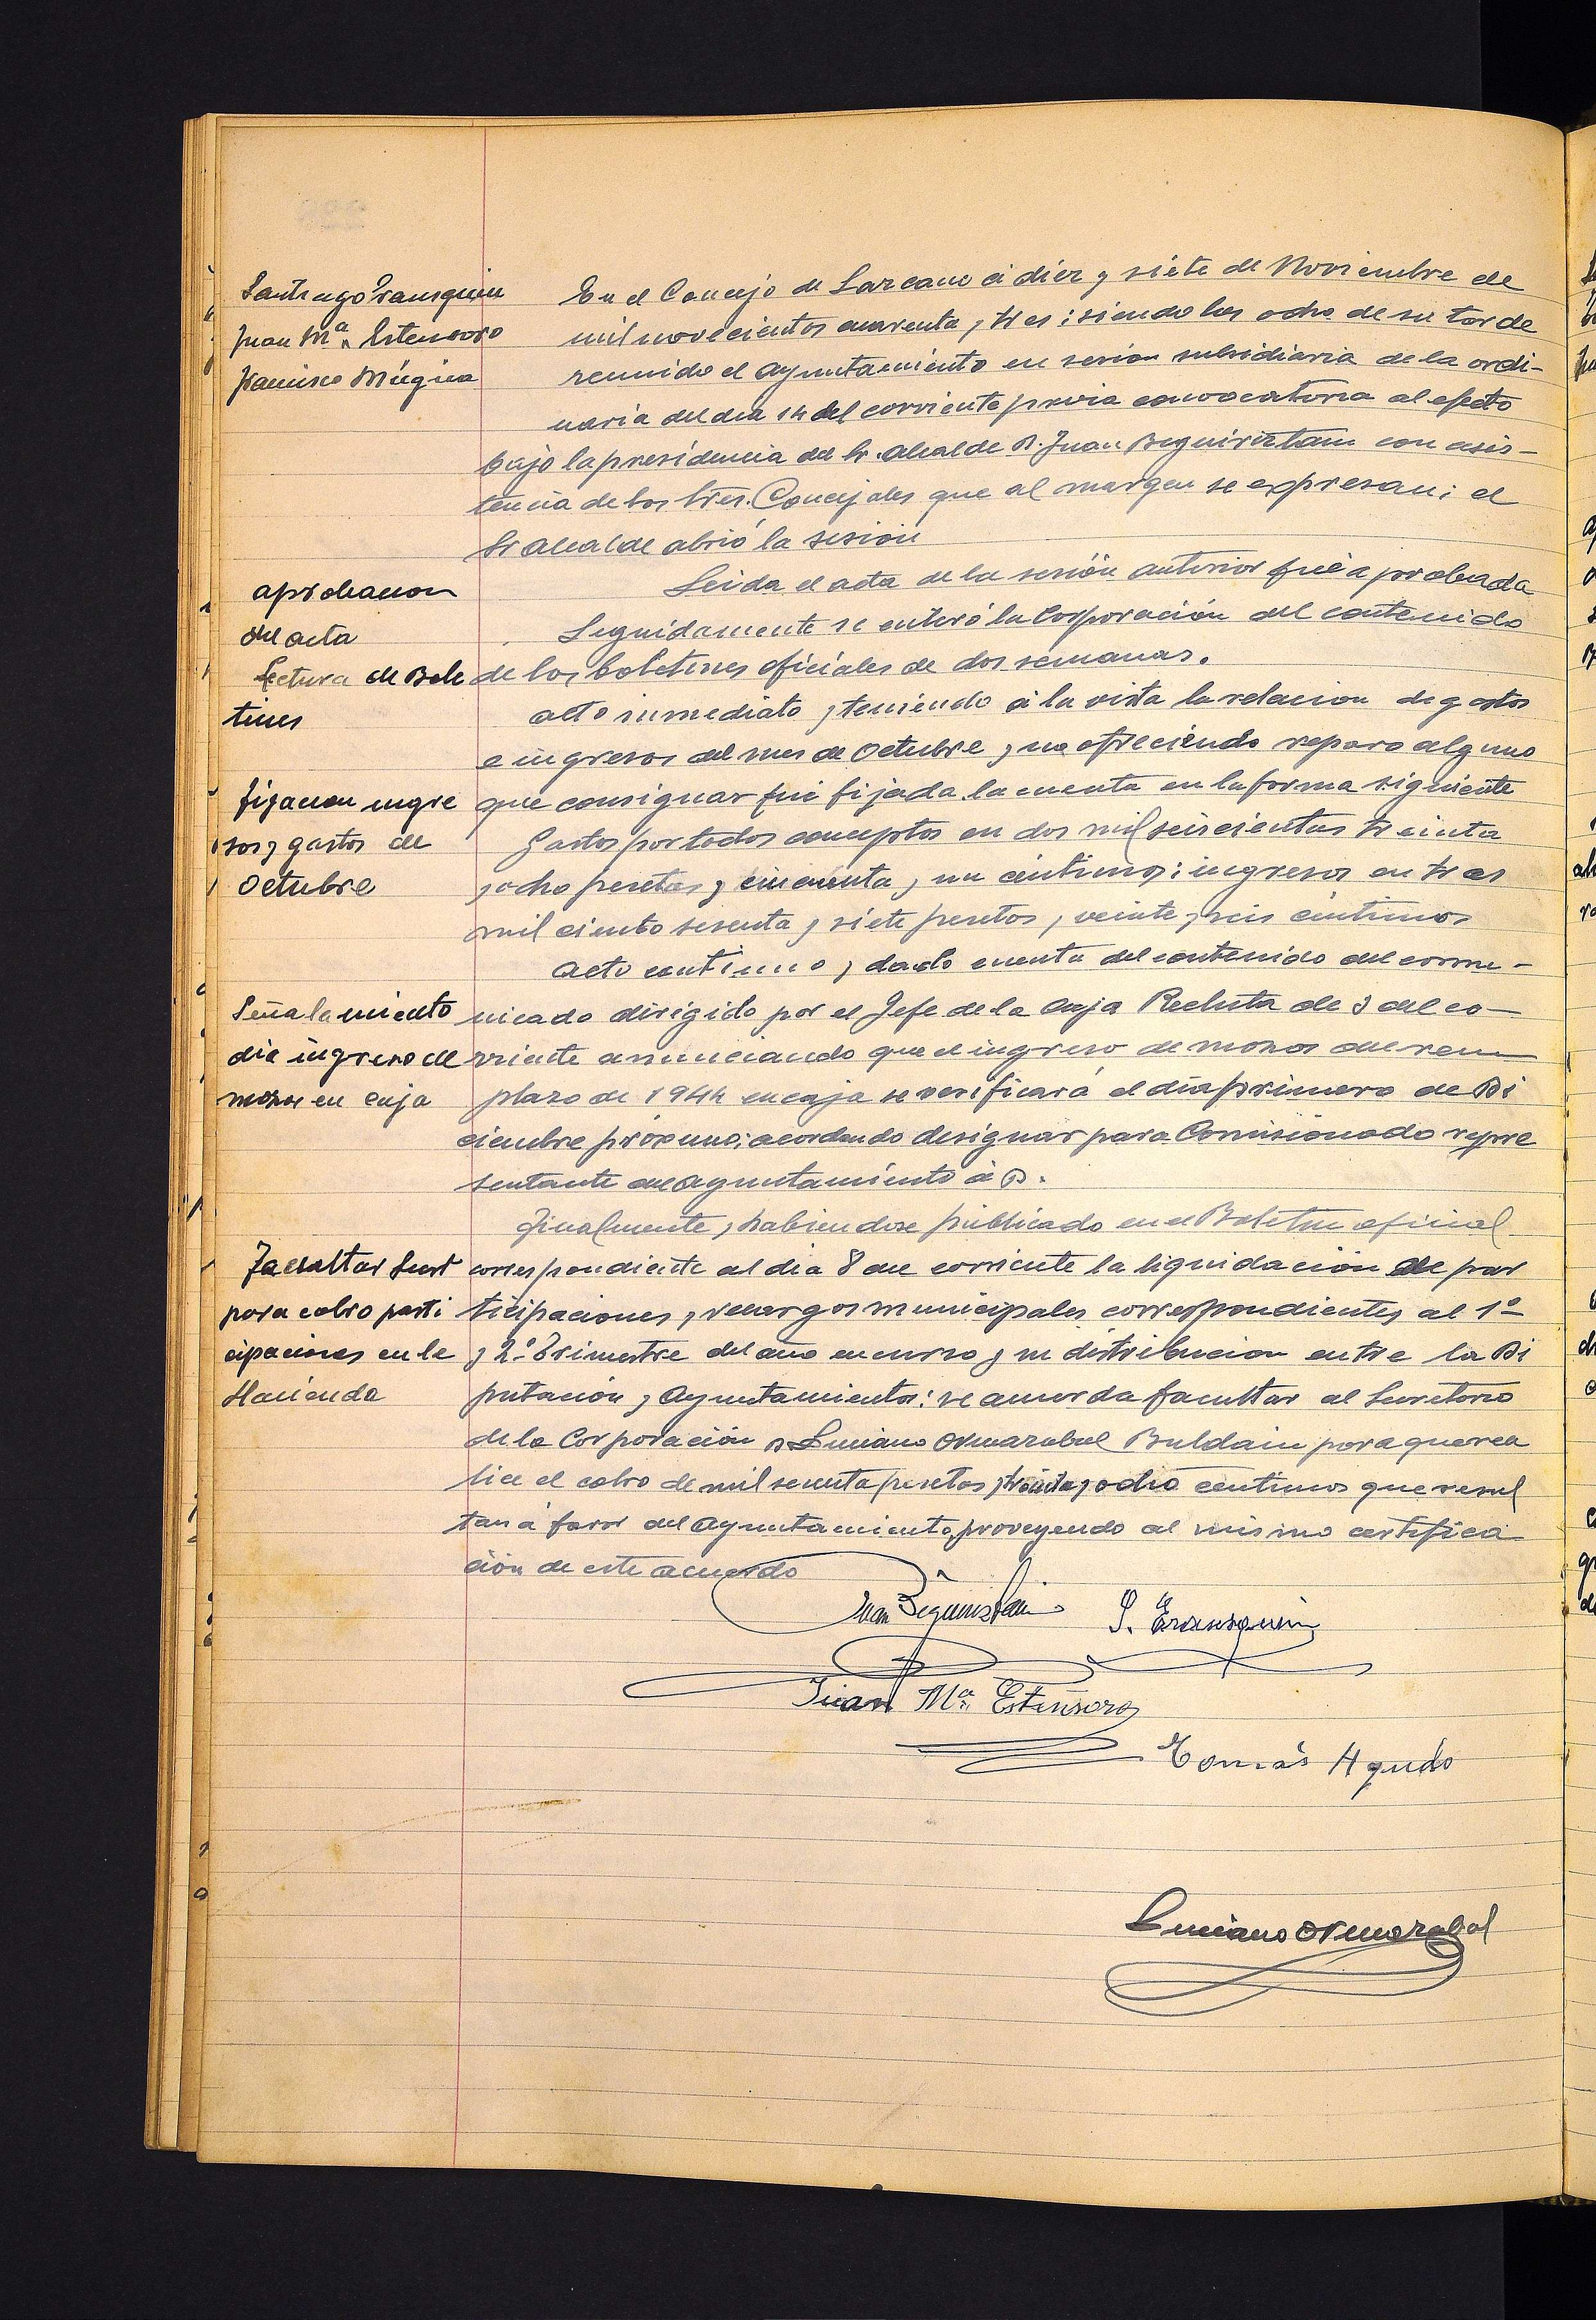 Santiago Irausquin
Juan Mª Estensoro
Francisco Múgica
En el Concejo de Lazcano á diez y siete de Noviembre de
mil novecientos cuarenta y tres: siendo las ocho de su tarde
reunido el Ayuntamiento en sesion subsidiaria de la ordi-
naria del dia 14 del corriente previa convocatoria al efecto
bajo la presidencia del Sr. Alcalde D. Juan Beguiristain con asis-
tencia de los Sres. Concejales que al margen se expresan; el
Sr Alcalde abrió la sesión
aprobacion
del acta
Leida el acta de la sesión anterior fué aprobada
Lectura de Bole
tines
Seguidamente se enteró la Corporación del contenido
de los boletines oficiales de dos semanas.
acto inmediato y teniendo á la vista la relacion de gastos
e ingresos del mes de Octubre y no ofreciendo reparo alguno
figacion ingre
sos y gastos de
Octubre
que consignar fué fijada la cuenta en la forma siguiente
Gastos por todos conceptos en dos mil seiscientas treinta
y ocho pesetas y cincuenta y un céntimos: ingresos en tres
mil ciento sesenta y siete pesetas y veinte y seis céntimos
Acto continuo y dado cuenta del contenido del comu-
Señalamiento
dia ingreso de
mozos en caja
nicado dirigido por el Jefe de la Caja Recluta de 3 del co-
rriente anunciando que el ingreso de mozos del reem
plazo de 1944 en caja se verificará el dia primero de Di
ciembre próximo; acordando designar para Comisionado repre
sentante del Ayuntamiento á D.
Finalmente, habiendose publicado en el Boletin oficial
Facultar Secrt
para cobro parti
cipaciones en la
Hacienda
correspondiente al dia 8 del corriente la liquidación de par
ticipaciones y recargos municipales correspondientes al 1º
y 2º Trimestre del año en curso y su distribucion entre la Di
putación y Ayuntamientos: se acuerda facultar al Secretario
de la Corporación D Luciano Ormazabal Buldain para que rea
lice el cobro de mil sesenta pesetas y treinta y ocho centimos que resul
tan á favor del Ayuntamiento, proveyendo al mismo certifica
ción de este acuerdo
Juan Beguiristain
S. Erausquin
Juan Mª Estensoro
Tomás Agudo
Luciano Ormazabal